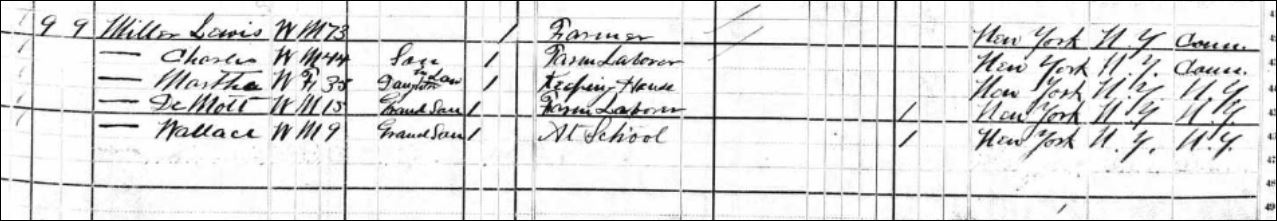 9 9 Miller Lewis W M 73 1 Farmer New York N.Y. Conn.
— Charles W M 44 Son 1 Farm Laborer New York N.Y. Conn.
— Martha W F 35 Daughter by Law 1 Keeping House New York N.Y. N.Y.
— DeMott W M 15 Grand Son 1 Farm Laborer 1 New York N.Y. N.Y.
— Wallace W M 9 Grand Son 1 At School 1 New York N.Y. N.Y.